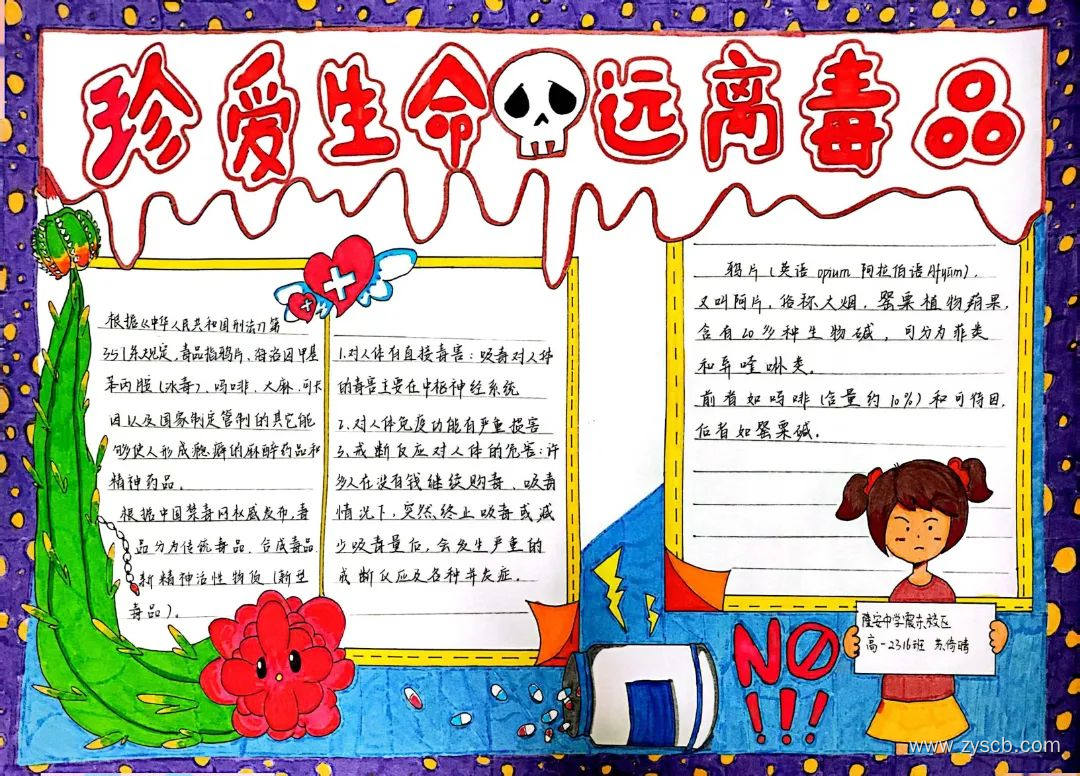 珍爱生命远离毒品
根据《中华人民共和国刑法》第
351条规定,毒品指鸦片、海洛因、甲基
苯丙胺(冰毒)、吗啡、大麻、可卡
因以及国家制定管制的其它能
够使人形成瘾癖的麻醉药品和
精神药品。
根据中国禁毒网权威发布,毒
品分为传统毒品、合成毒品
新精神活性物质(新型
毒品)。
1.对人体有直接毒害:吸毒对人体
的毒害主要在中枢神经系统
2.对人体免疫功能有严重损害
3.戒断反应对人体的危害:许
多人在没有钱继续购毒、吸毒
情况下,突然终止吸毒或减
少吸毒量后,会发生严重的
戒断反应及各种并发症。
鸦片(英语opium 阿拉伯语Afyūm),
又叫阿片,俗称大烟,罂粟植物蒴果,
含有20多种生物碱,可分为菲类
和异喹啉类。
前者如吗啡(含量约10%)和可待因,
后者如罂粟碱。
隆安中学震东校区
高一2316班 苏倚晴
NO
!!!
www.zyscb.com